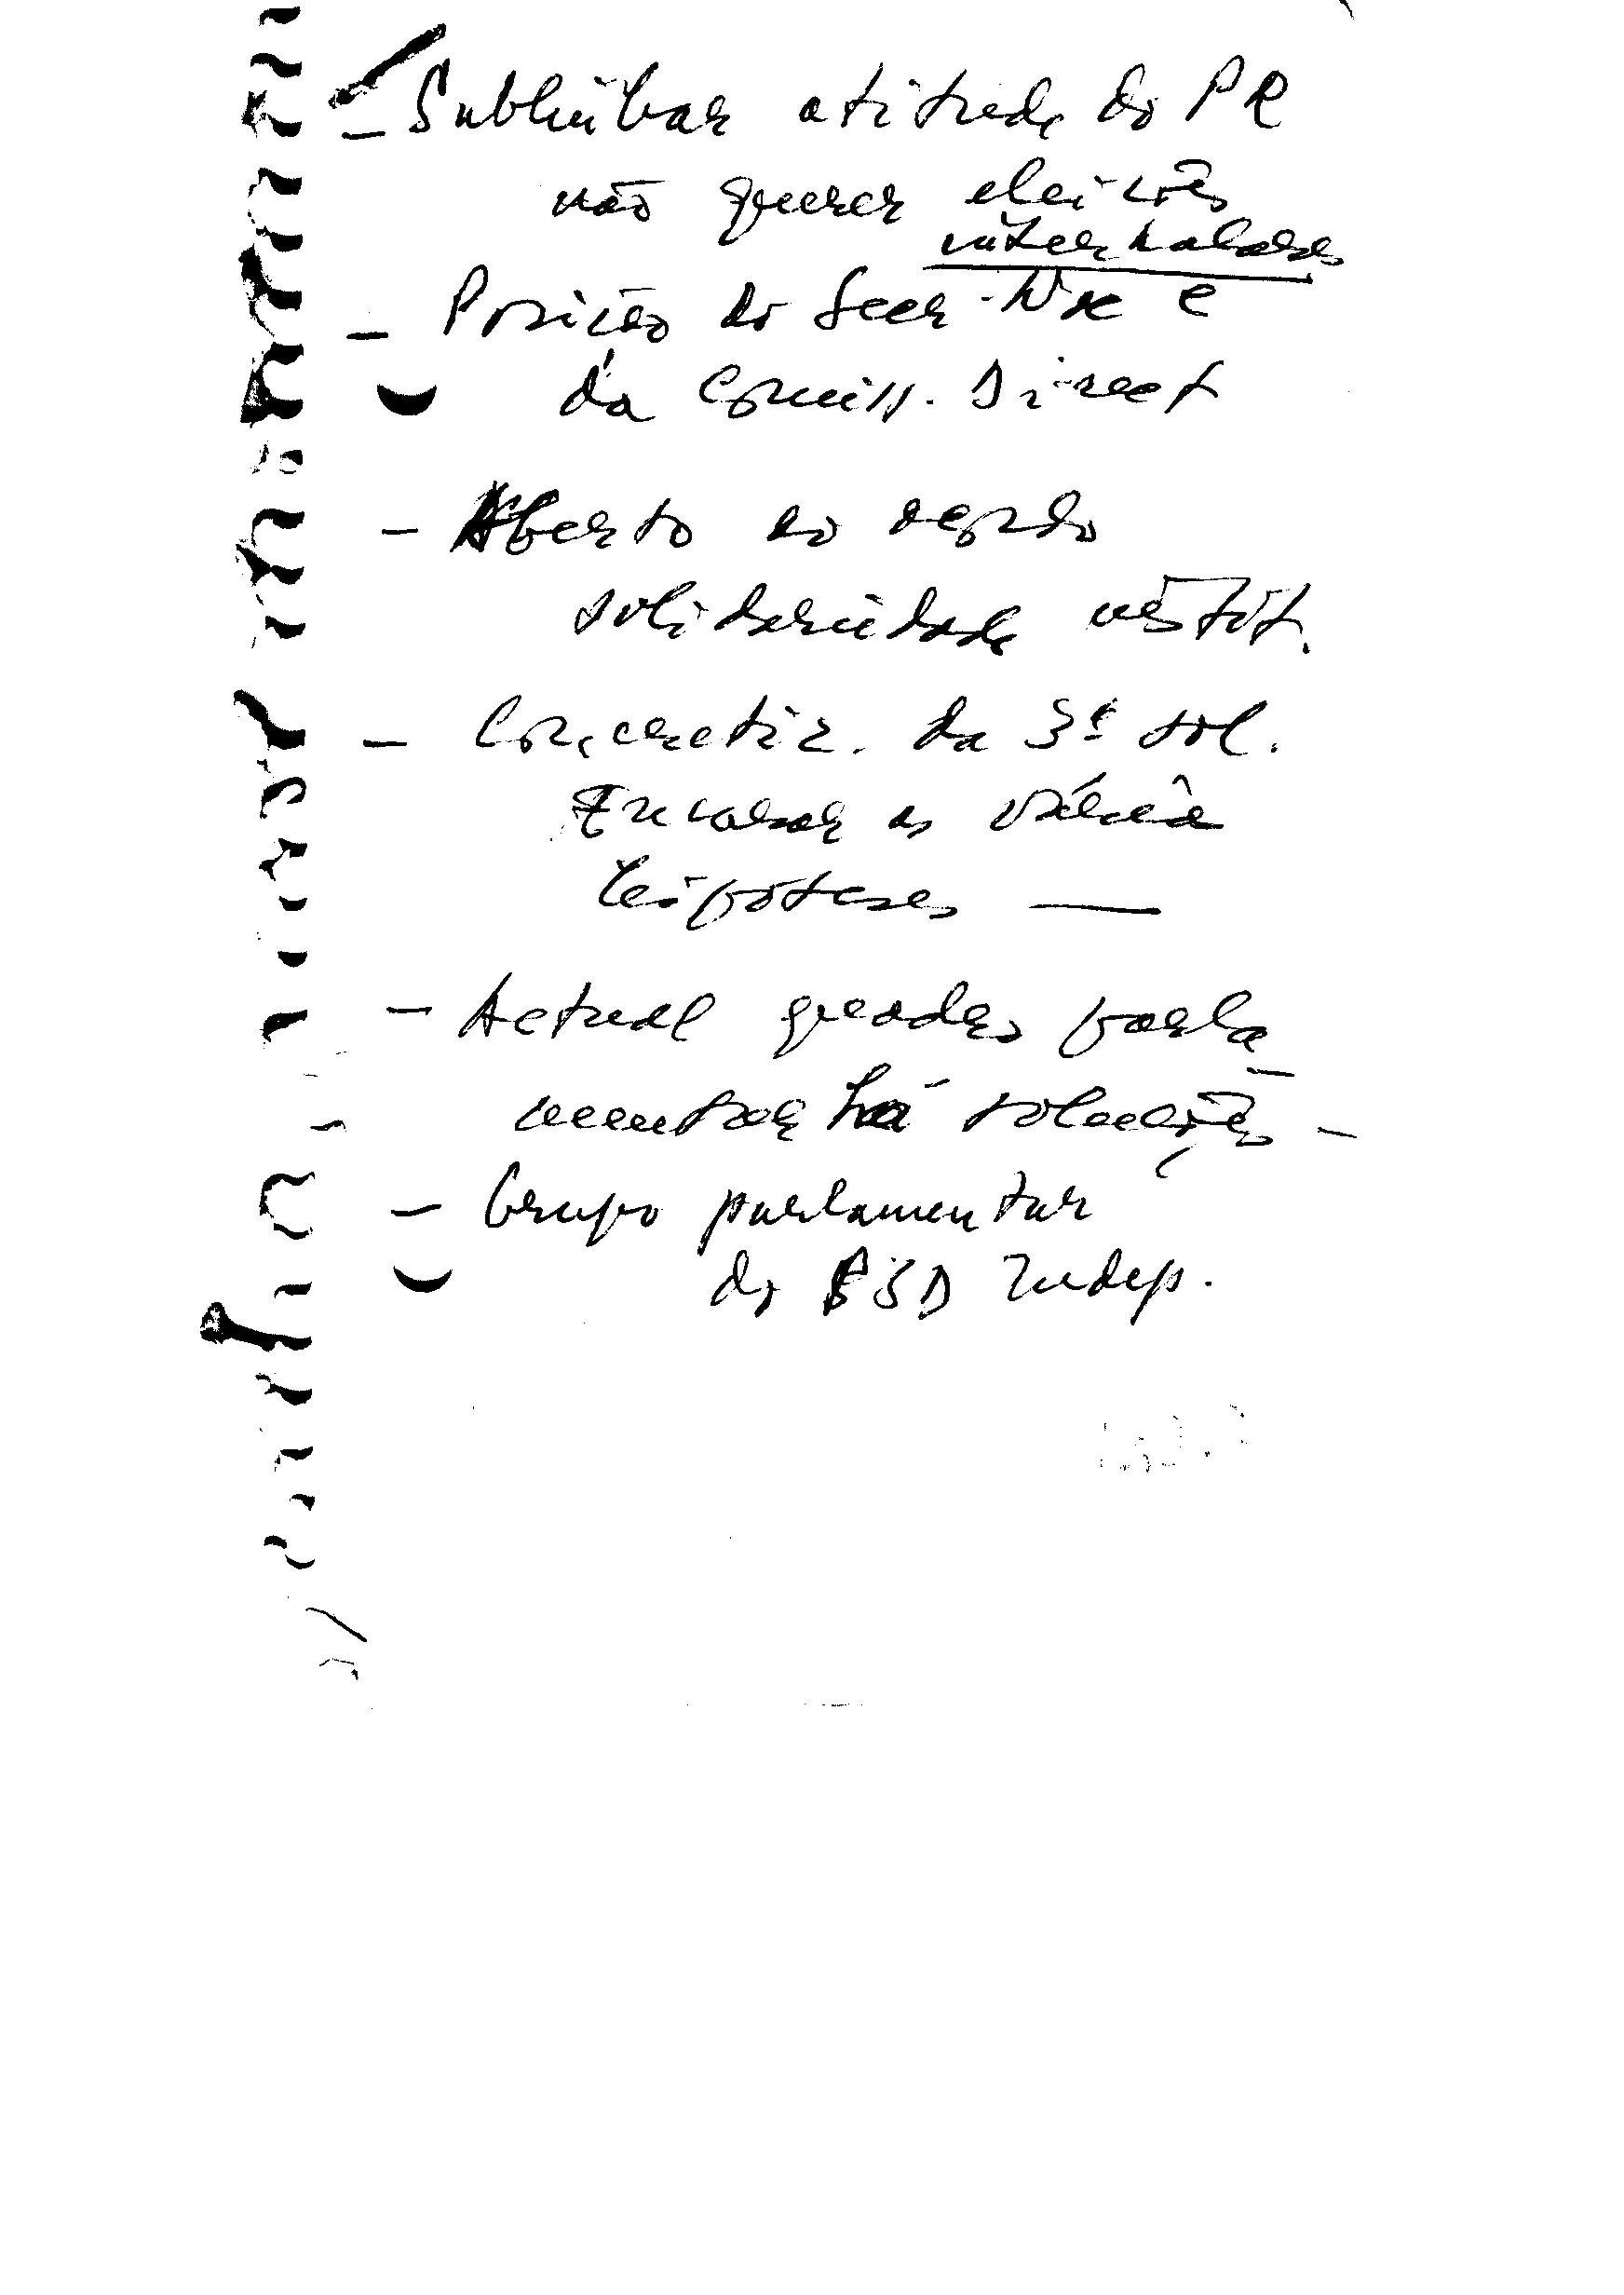 - Sublinhar atitude do PR
não querer eleições
intercalares
- Posição do Secr-
da Comiss. Direct
- Aberto ao
solidariedade
- Concretiz. da 3ª sol.
Encarar as várias
hipóteses —
- Actual quadro parla-
mentar há soluções -
- Grupo parlamentar
do PSD Indep.